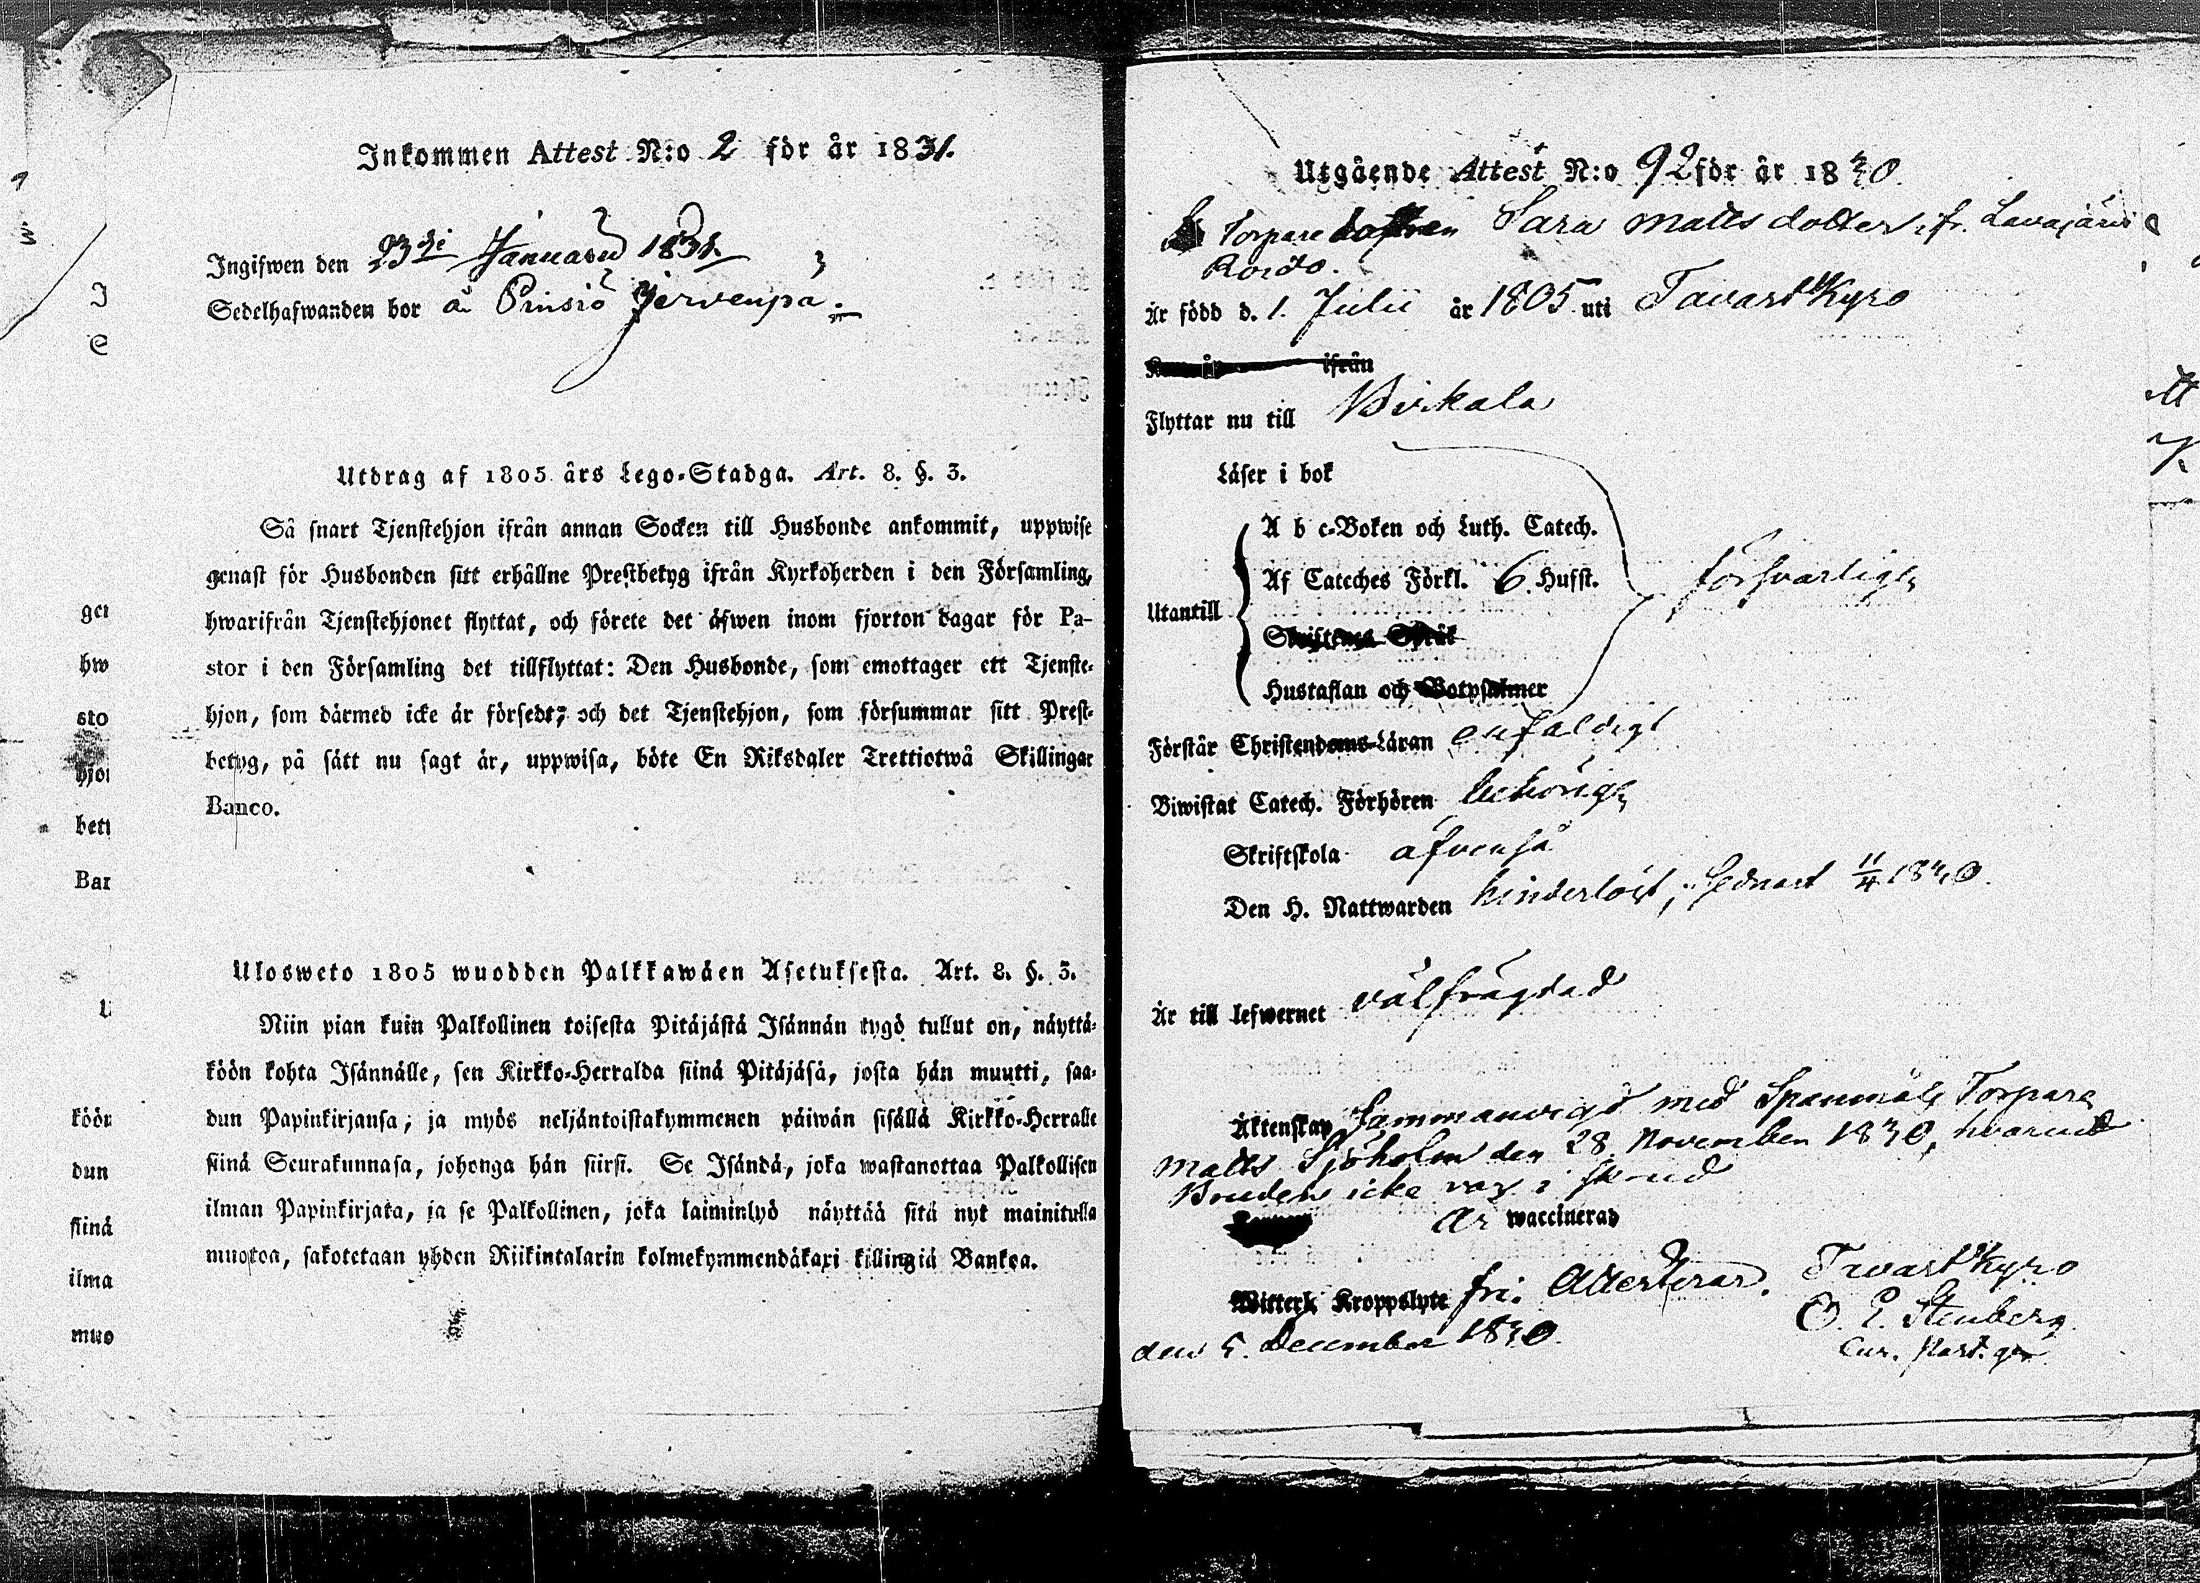 Inkommen Attest N:o 2 för år 1831.
Ingifwen den 23di Januari 1831.
Sedelhafwanden bor å Pinsiö Jervenpä.
Utdrag af 1805 års Lego-Stadga. Art. 8. §. 3.
Så snart Tjenstehjon ifrån annan Socken till Husbonde ankommit, uppwise
genast för Husbonden sitt erhållne Prestbetyg ifrån Kyrkoherden i den Församling,
hwarifrån Tjenstehjonet flyttat, och förete det äfwen inom fjorton dagar för Pa-
stor i den Församling det tillflyttat: Den Husbonde, som emottager ett Tjenste-
hjon, som därmed icke är försedt; och det Tjenstehjon, som försummar sitt Prest-
betyg, på sätt nu sagt är, uppwisa, böte En Riksdaler Trettiotwå Skillingar
Banco.
Ulosweto 1805 wuodden Palkkawäen Asetuksesta. Art. 8. §. 3.
Niin pian kuin Palkollinen toisesta Pitäjästä Isännän tygö tullut on, näyttä-
köön kohta Isännälle, sen Kirkko-Herralda siinä Pitäjäsä, josta hän muutti, saa-
dun Papinkirjansa; ja myös neljäntoistakymmenen päiwän sisällä Kirkko-Herralle
siinä Seurakunnasa, johonga hän siirsi. Se Isändä, joka wastanottaa Palkollisen
ilman Papinkirjata, ja se Palkollinen, joka laiminlyö näyttää sitä nyt mainitulla
muotoa, sakotetaan yhden Riikintalarin kolmekymmendäkaxi killingiä Bankoa.
ger
hw
sto
hjon
bety
Ban
köön
dun
siinä
ilma
muo
Utgående Attest N:o 92 för år 1830.
Torpare dottren Sara Mattsdotter ifr. Lavajärvi
Roido.
Är född d. 1. Julii år 1805 uti TavastKyro
ifrån
Flyttar nu till Birkala
Läser i bok
A b c-Boken och Luth. Catech.
Af Cateches Förkl. 6. Hufst.
Utantill försvarligt
Skriftenes Språk
Hustaflan och Botpsalmer
Förstår Christendoms-Läran enfaldigt
Biwistat Catech. Förhören behörigt
Skriftskola äfvenså
Den H. Nattwarden hinderlöst, sednast 11/4 1830.
Är till lefwernet välfrägdad
Äktenskap Sammanvigd med Spanmåls Torpare
Matts Sjöholm den 28 November 1830, hvarvid
Bruden icke var i skrud
är waccinerad
Witterl. Kroppslyte fri. Attesterar. TavastKyro
den 5. December 1830. O. E. Stenberg
Cur. Past. gr.